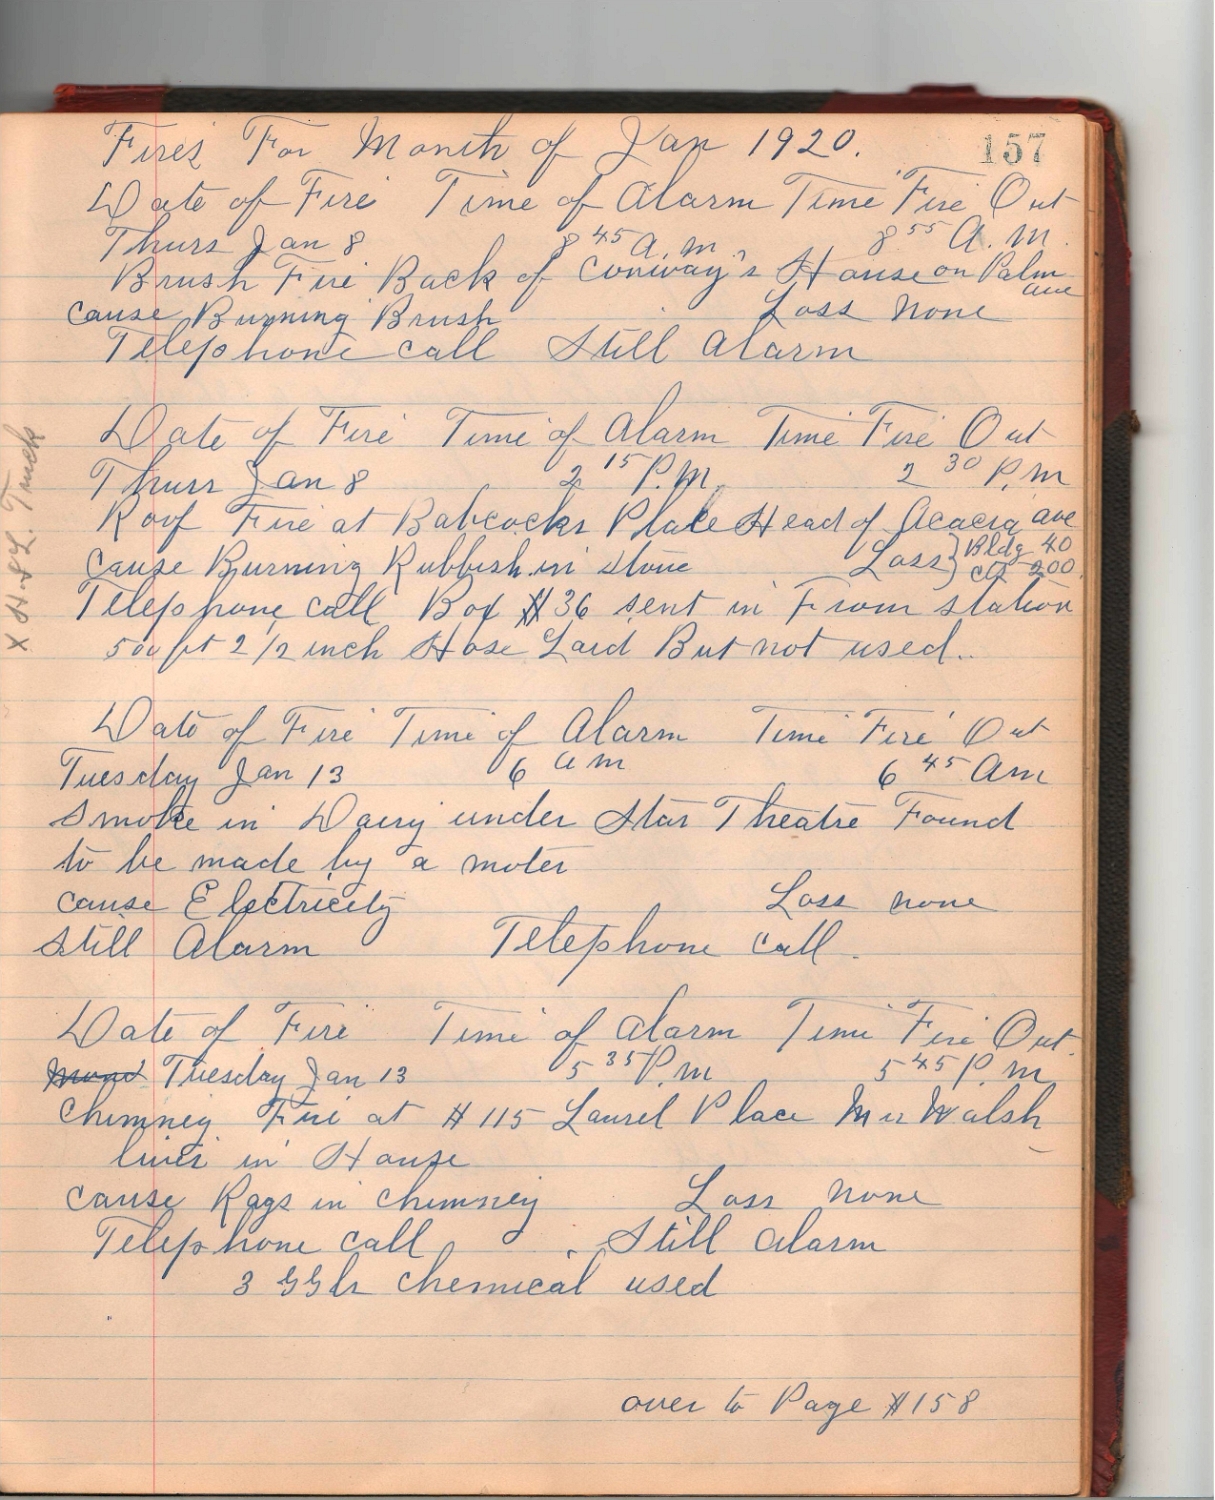 Fires For Month of Jan 1920. 157
Date of Fire Time of Alarm Time Fire Out
Thurs Jan 8 8 45 A.m. 8 55 A.M.
Brush Fire Back of Conway's House on Palm
ave
cause Burning Brush Loss none
Telephone call Still Alarm
Date of Fire Time of Alarm Time Fire Out
Thurs Jan 8 2 15 P.M. 2 30 P.M
Roof Fire at Babcocks Place Head of Acacia ave
cause Burning Rubbish in stove Loss } Bldg 40
cts 200.
Telephone call Box #36 sent in From station
500 ft 2 1/2 inch Hose Laid But not used..
X H & L. Truck
Date of Fire Time of Alarm Time Fire Out
Tuesday Jan 13 6 am 6 45 Am
Smoke in Dairy under Star Theatre Found
to be made by a moter
cause Electricity Loss none
Still Alarm Telephone call.
Date of Fire Time of Alarm Time Fire Out.
Mond Tuesday Jan 13 5 35 P.m 5 45 P.m
Chimney Fire at #115 Laurel Place Mrs Walsh
lives in House
cause Rags in chimney Loss none
Telephone call. Still alarm
3 chemical used
over to Page #158